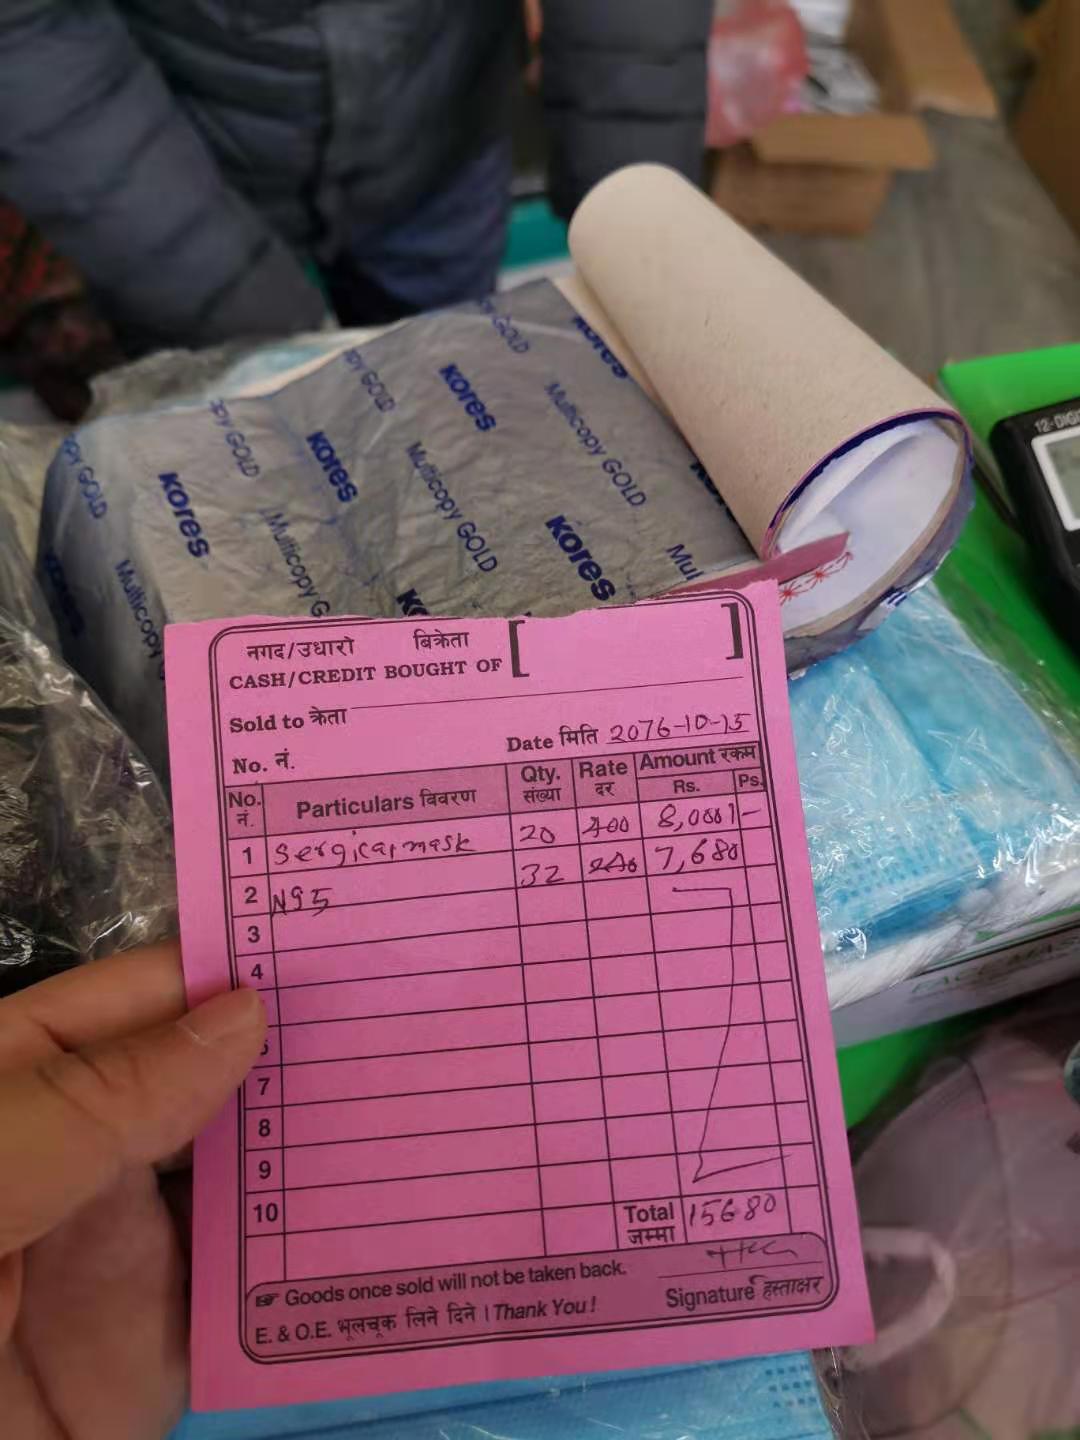 kores
Multicopy GOLD
kores
Multicopy GOLD
kores
Multicopy GOLD
kores
12-DIGI
नगद/उधारो बिक्रेता
CASH/CREDIT BOUGHT OF [ ]
Sold to क्रेता
No. नं. Date मिति 2076-10-15
No. नं. Particulars विवरण Qty. संख्या Rate दर Amount रकम Rs. Ps.
1 Sergical mask 20 400 8,000/-
2 N95 32 240 7,680
3
4
7
8
9
10
Total जम्मा 15680
☞ Goods once sold will not be taken back.
Signature हस्ताक्षर
E. & O.E. भूलचूक लिने दिने । Thank You !
FACE MAS